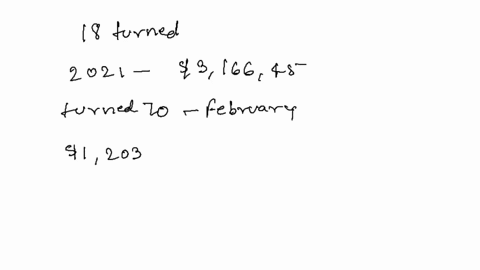 18 turned
2021 - $3,166,45
turned 70 - February
$1,203